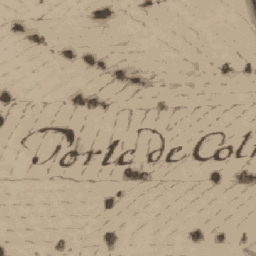 Porte de Col